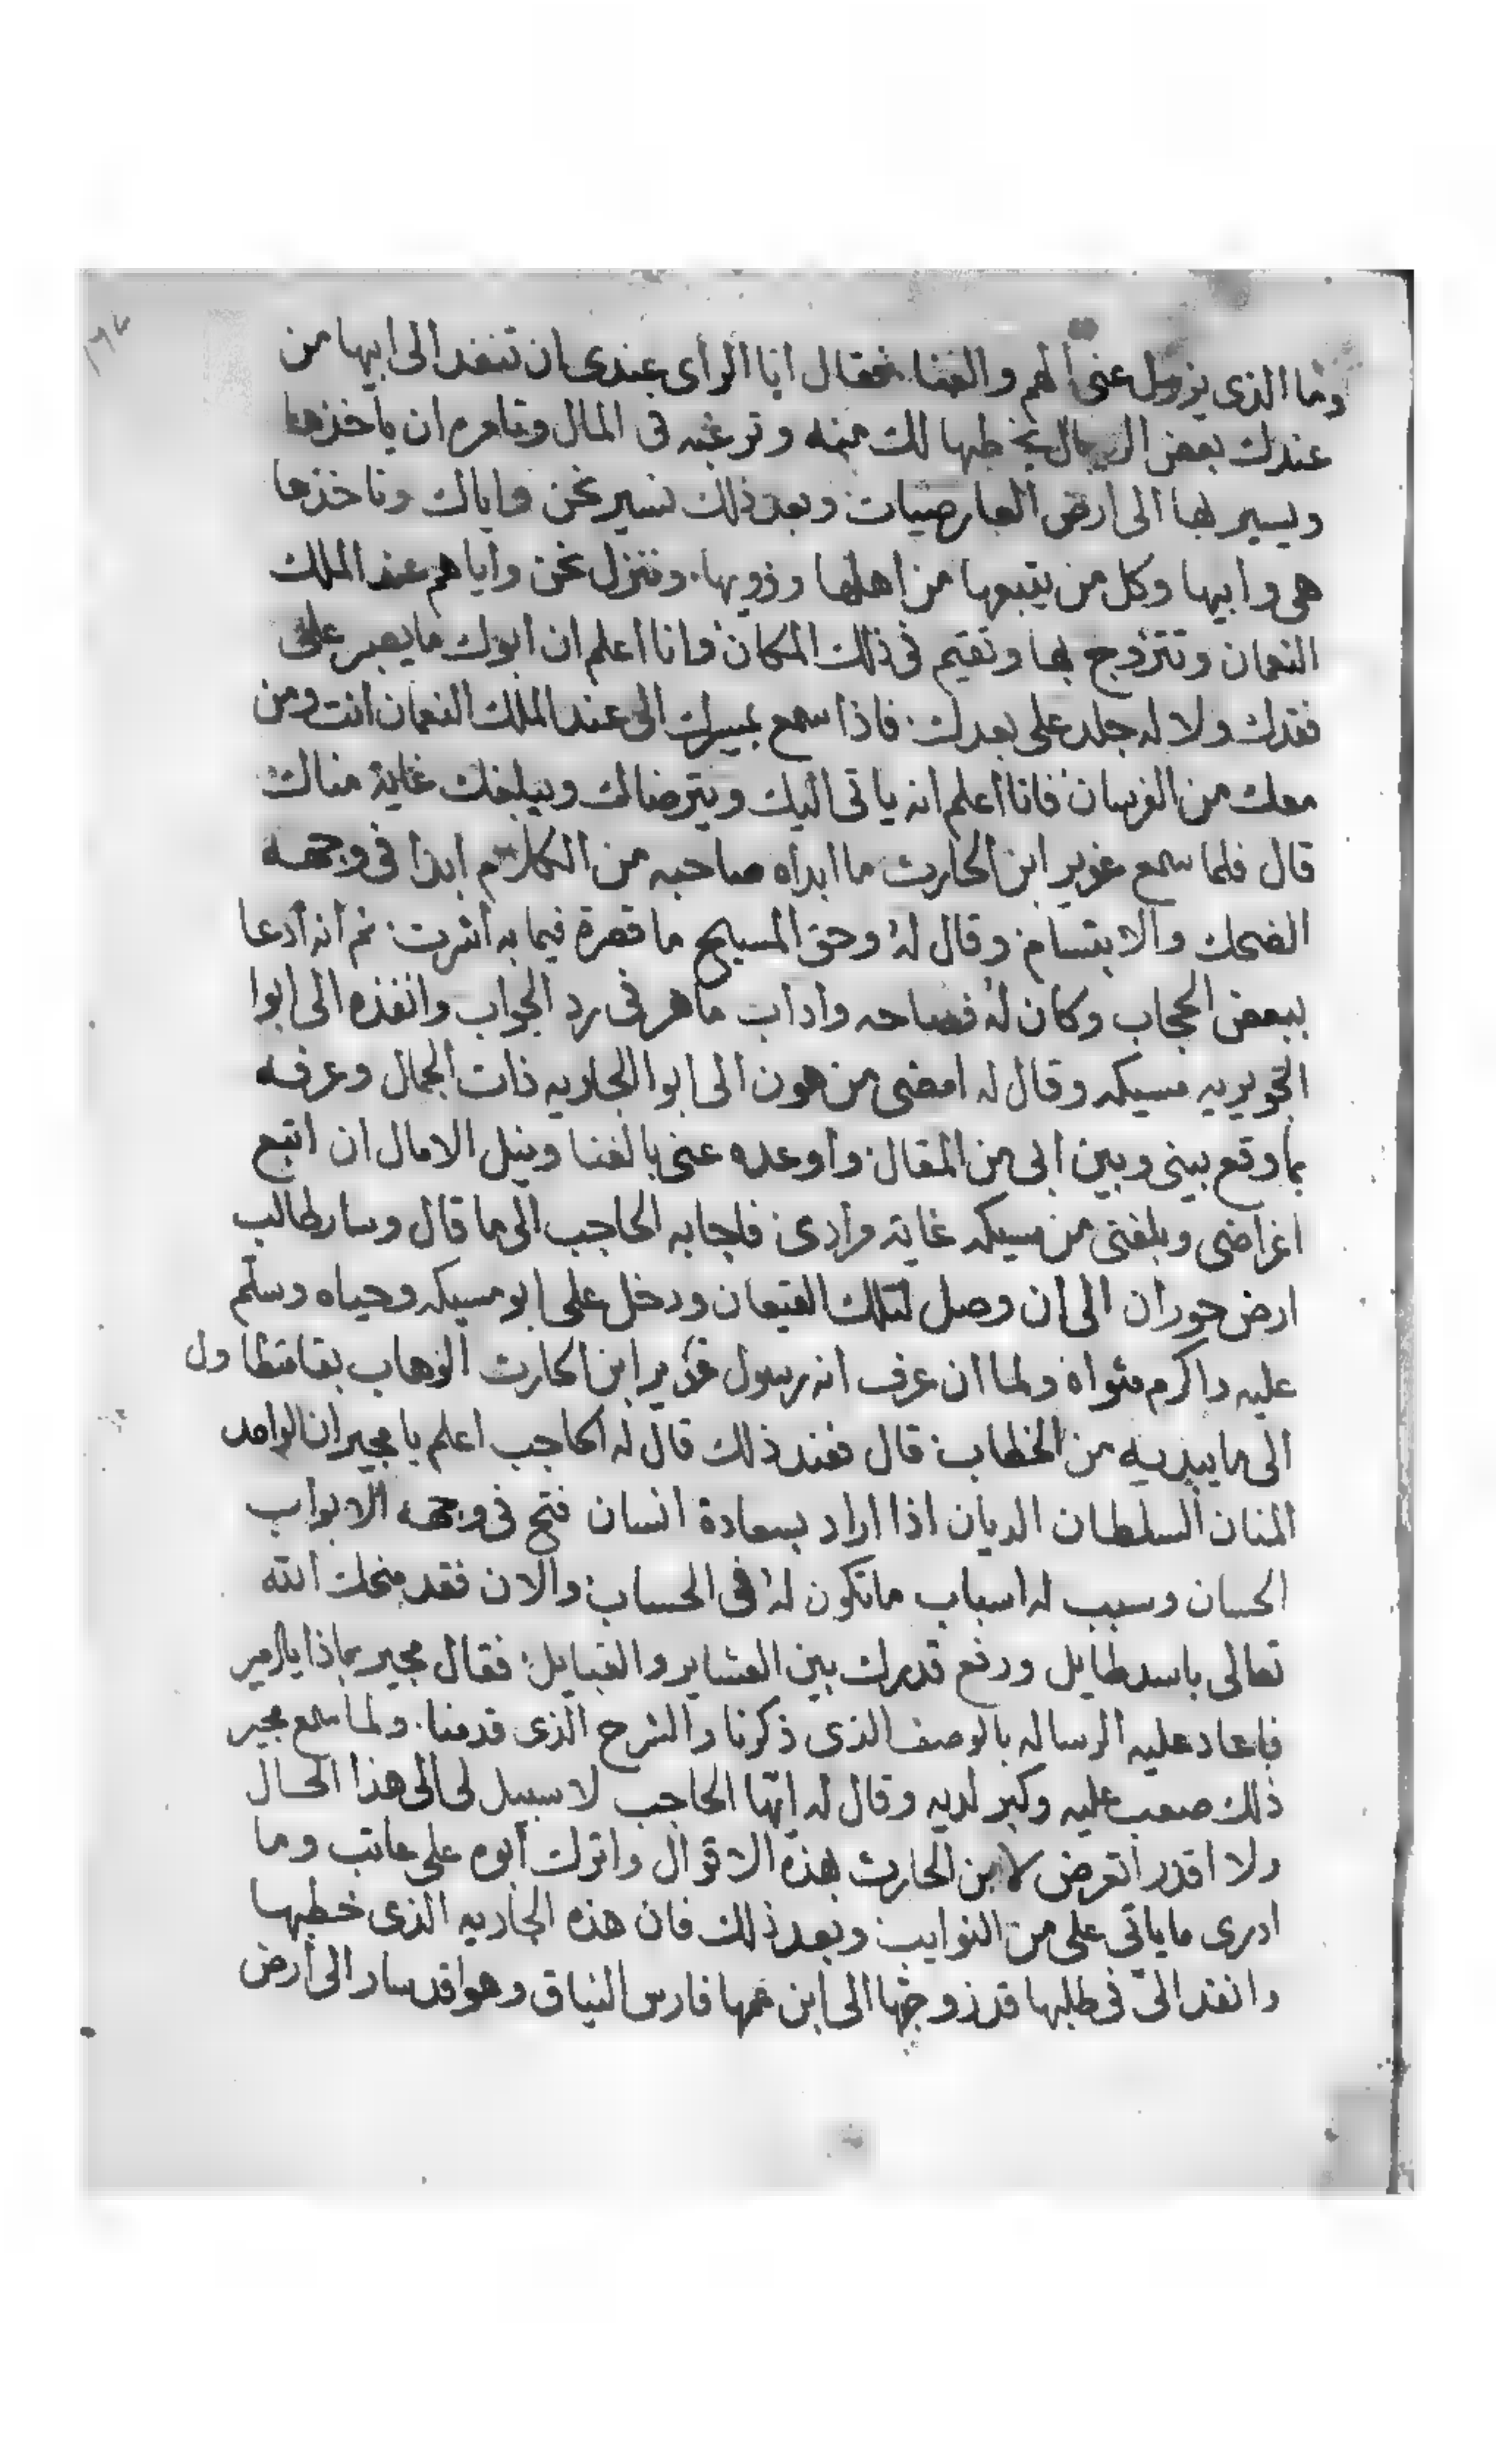 ١٦٧
وما الذى يزول عنى الهم والعنا فحقال انا الرأى عندى ان تنفد الى ابيها من
عندك بعض الرجال يخطبها لك منه وترغبه فى المال وتامره ان ياخذها
ويسير بها الى ارض العارضيات وبعد ذلك نسير نحن واياك وناخذها
هى وابيها وكل من يتبعها من اهلها وذويها. وننزل نحن واياهم عند الملك
النعمان وتتزوج بها وتقيم فى ذلك المكان وانا اعلم ان ابوك ما يصبر على
فقدك ولا له جلد على بعدك فاذا سمع بمسيرك الى عند الملك النعمان انت ومن
معك من الفرسان فانا اعلم انه ياتى اليك ويترضاك ويبلغك غاية مناك
قال فلما سمع غوير ابن الحارث ما ابداه صاحبه من الكلام ابدا فى وجهه
الضحك والابتسام وقال له وحق المسيح ما قصرة فيما به اشرت ثم انه ادعا
ببعض الحجاب وكان له فصاحه واداب ماهر فى رد الجواب وانفذه الى ابوا
الجويريه مسيكه وقال له امضى من هون الى ابوا الجاريه ذات الجمال وعرفه
بما وقع بينى وبين ابى من المقال واوعده عنى بالغنا ونيل الامال ان اتبع
اغراضى وبلغنى من مسيكه غاية مرادى فاجابه الحاجب الى ما قال وسار طالب
ارض حوران الى ان وصل لتلك القيعان ودخل على ابو مسيكه وحياه وسلم
عليه واكرم مثواه ولما ان عرف انه رسول غوير ابن الحارث الوهاب بقا متطاول
الى ما يبديه من الخطاب قال فعند ذلك قال له الحاجب اعلم يا مجير ان الواحد
المنان السلطان الديان اذا اراد بسعادة انسان فتح فى وجهه الابواب
الحسان وسبب له اسباب ما تكون له فى الحساب والان فقد منحك الله
تعالى باسد طايل ورفع قدرك بين العشاير والقبايل فقال مجير بماذا يا امير
فاعاد عليه الرساله بالوصف الذى ذكرنا والشرح الذى قدمنا. ولما سمع مجير
ذلك صعب عليه وكبر لديه وقال له ايها الحاجب لا سبيل لى الى هذا الحال
ولا اقدر اتعرض لابن الحارث بهذه الاقوال واترك ابوه على عاتب وما
ادرى ما ياتى على من النوايب وبعد ذلك فان هذه الجاريه الذى خطبها
وانفد الىّ فى طلبها قد زوجتها الى ابن عمها فارس النياق وهوا قد سار الى ارض